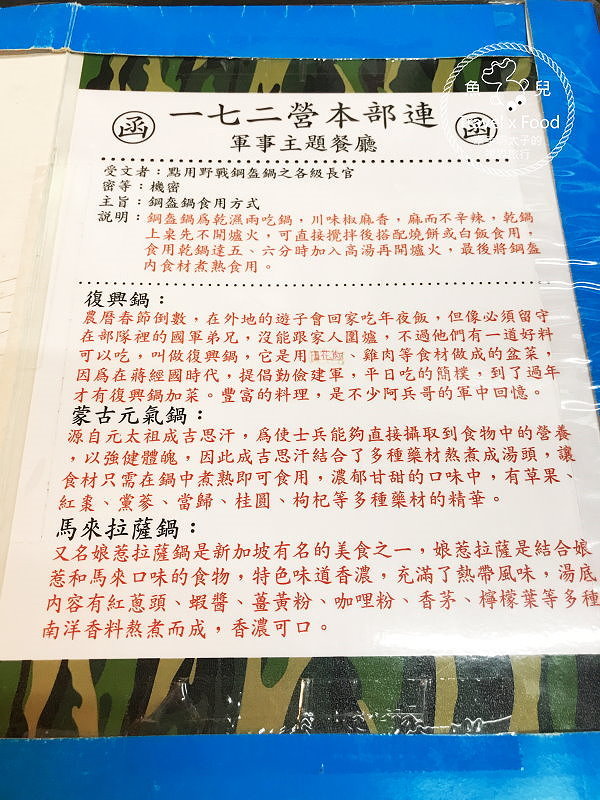 函 一七二營本部連 函
軍事主題餐廳
受文者：點用野戰鋼盔鍋之各級長官
密等：機密
主旨：鋼盔鍋食用方式
說明：鋼盔鍋為乾濕兩吃鍋，川味椒麻香，麻而不辛辣，乾鍋
上桌先不開爐火，可直接攪拌後搭配燒餅或白飯食用，
食用乾鍋達五、六分時加入高湯再開爐火，最後將鋼盔
內食材煮熟食用。
復興鍋：
農曆春節倒數，在外地的遊子會回家吃年夜飯，但像必須留守
在部隊裡的國軍弟兄，沒能跟家人圍爐，不過他們有一道好料
可以吃，叫做復興鍋，它是用、雞肉等食材做成的盆菜，
因為在蔣經國時代，提倡勤儉建軍，平日吃的簡樸，到了過年
才有復興鍋加菜。豐富的料理，是不少阿兵哥的軍中回憶。
蒙古元氣鍋：
源自元太祖成吉思汗，為使士兵能夠直接攝取到食物中的營養
，以強健體魄，因此成吉思汗結合了多種藥材熬煮成湯頭，讓
食材只需在鍋中煮熟即可食用，濃郁甘甜的口味中，有草果、
紅棗、黨蔘、當歸、桂圓、枸杞等多種藥材的精華。
馬來拉薩鍋：
又名娘惹拉薩鍋是新加坡有名的美食之一，娘惹拉薩是結合娘
惹和馬來口味的食物，特色味道香濃，充滿了熱帶風味，湯底
內容有紅蔥頭、蝦醬、薑黃粉、咖哩粉、香茅、檸檬葉等多種
南洋香料熬煮而成，香濃可口。
魚 兒
x Food